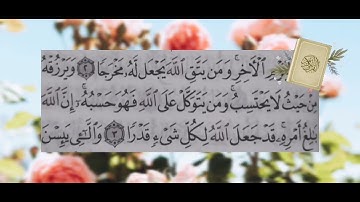 الْآخِرِ ۚ وَمَن يَتَّقِ اللَّهَ يَجْعَل لَّهُ مَخْرَجًا ۝ وَيَرْزُقْهُ
مِنْ حَيْثُ لَا يَحْتَسِبُ ۚ وَمَن يَتَوَكَّلْ عَلَى اللَّهِ فَهُوَ حَسْبُهُ ۚ إِنَّ اللَّهَ
بَالِغُ أَمْرِهِ ۚ قَدْ جَعَلَ اللَّهُ لِكُلِّ شَيْءٍ قَدْرًا ۝٣ وَاللَّائِي يَئِسْنَ